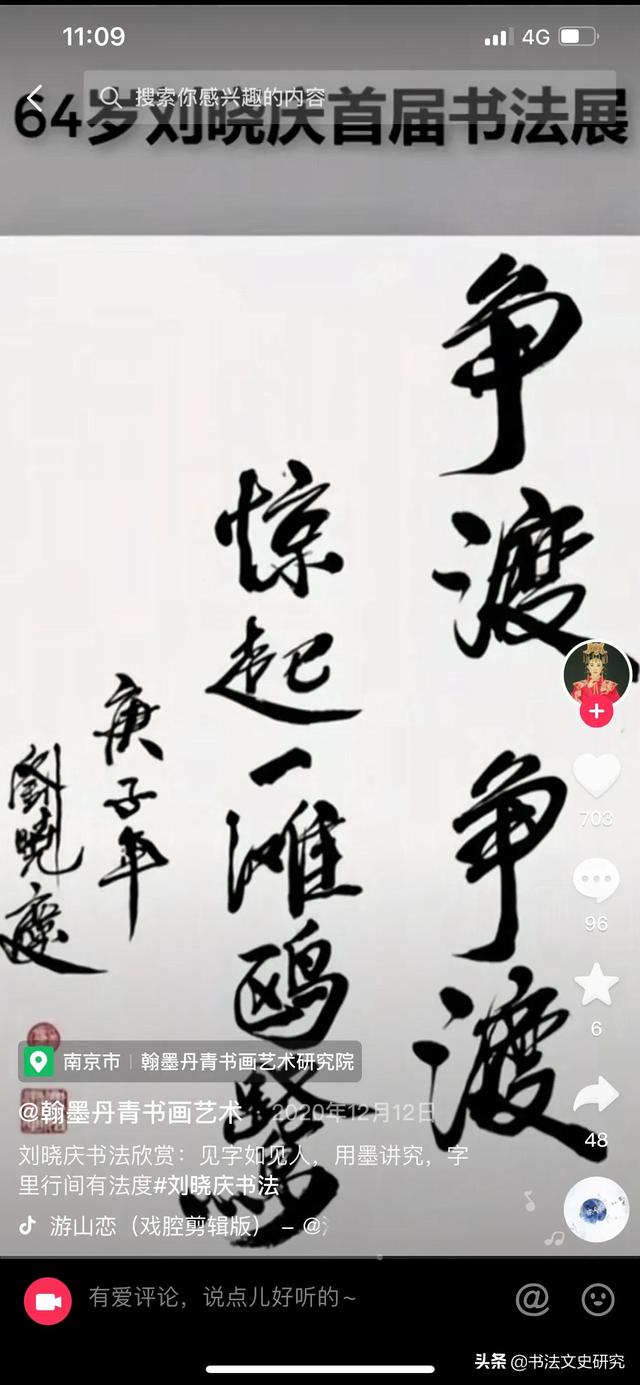 11:09
4G
搜索你感兴趣的内容
64岁刘晓庆首届书法展
争渡争渡
惊起一滩鸥鹭
庚子年
劉曉慶
703
96
6
48
南京市 | 翰墨丹青书画艺术研究院
@翰墨丹青书画艺术 · 2020年12月12日
刘晓庆书法欣赏：见字如见人，用墨讲究，字
里行间有法度#刘晓庆书法
游山恋（戏腔剪辑版） – @
有爱评论，说点儿好听的~
头条 @书法文史研究